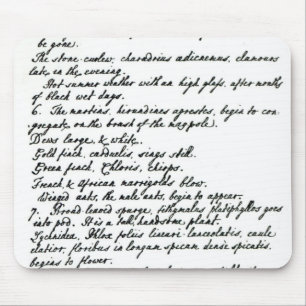 be gone).
The stone-curlew, charadrius œdicnemus, clamours
late in the evening.
Hot summer weather with an high glass, after months
of black wet days.
6. The martins, hirundines agrestes, begin to con-
gregate on the brush of the maypole).
Dews large, & white.
Gold finch, carduelis, sings still.
Green finch, Chloris, chirps.
French, & African marrigolds blow.
Winged ants, the male ants, begin to appear.
7. Broad leaved spurge, tithymalus platyphyllos goes
into pod. It is a tall, handsome, plant.
Lychnidea, Phlox foliis lineari-lanceolatis, caule
elatior, floribus in longam spicam dense spicatis,
begins to flower.